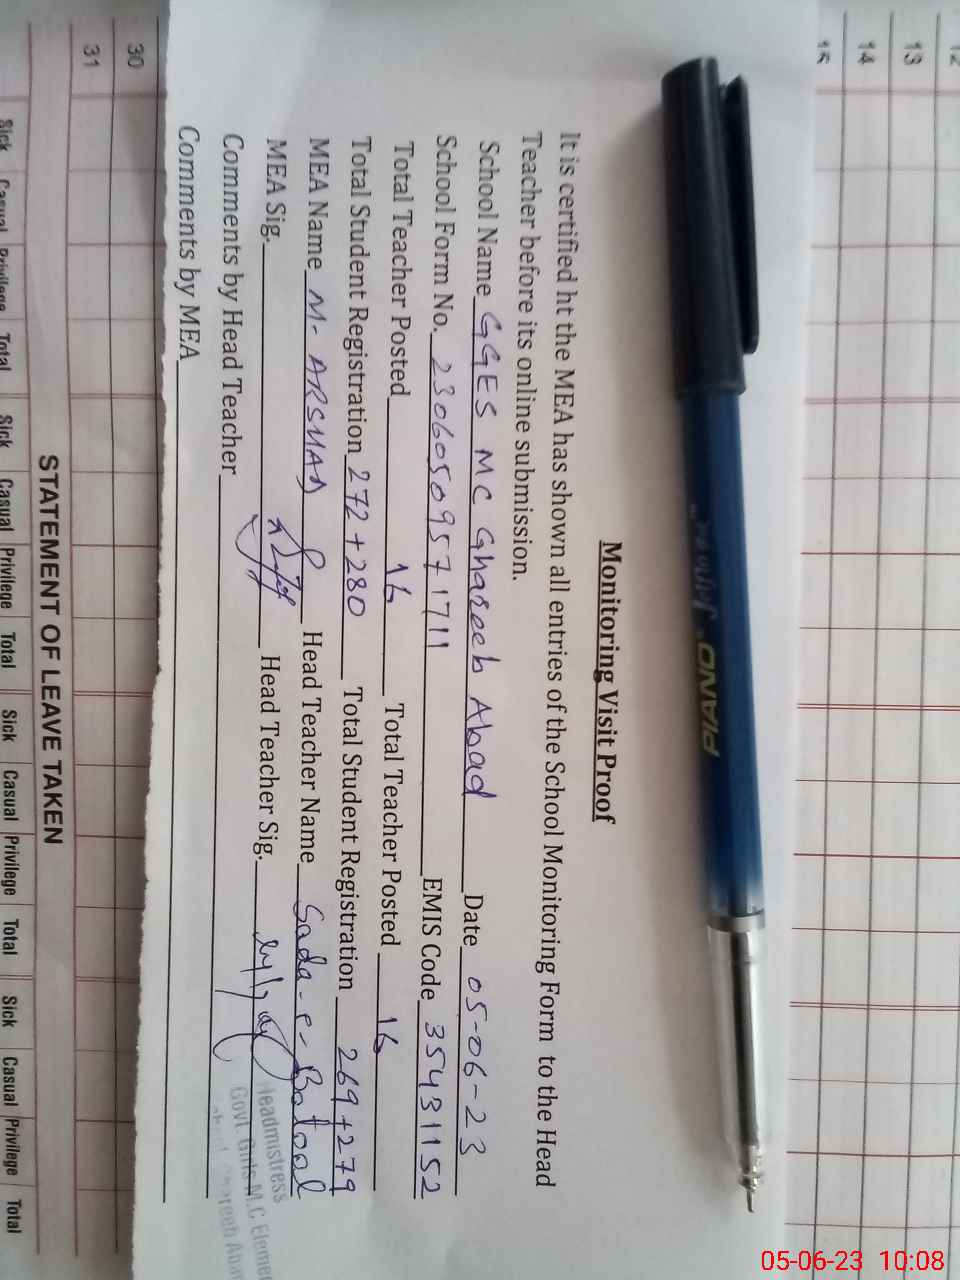 Monitoring Visit Proof
It is certified ht the MEA has shown all entries of the School Monitoring Form to the Head
Teacher before its online submission.
School Name GGES MC Ghareeb Abad Date 05-06-23
School Form No. 23060509571711 EMIS Code 35431152
Total Teacher Posted 16 Total Teacher Posted 16
Total Student Registration 272+280 Total Student Registration 269+279
MEA Name M. ARSHAD Head Teacher Name Sada-e-Batool
MEA Sig. Head Teacher Sig.
Comments by Head Teacher
Comments by MEA
Headmistress
Govt. Girls M.C Eleme
Ghareeb Aba
PIANO
12
13
14
15
30
31
STATEMENT OF LEAVE TAKEN
Sick Casual Privilege Total Sick Casual Privilege Total Sick Casual Privilege Total Sick Casual Privilege Total
05-06-23 10:08